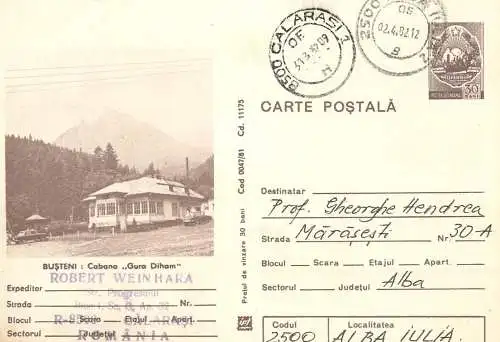 8500 CALARASI 1
OF.
31.3.82.09
H
OF
02.4.82.12
8
POSTA ROMANA 30 BANI
CARTE POȘTALĂ
Cod 0047/81 Cd. 11175
Prețul de vînzare 30 bani
BUȘTENI : Cabana „Gura Diham"
ROBERT WEINHARA
Expeditor
Str. Progresului
Strada Nr.
Blocul Scara Etajul Apart.
CALARASI
Sectorul Județul
ROMÂNIA
Destinatar Prof. Gheorghe Hendrea
Strada Mărășești Nr. 30-A
Blocul Scara Etajul Apart.
Sectorul Județul Alba
Codul
2500
Localitatea
ALBA IULIA